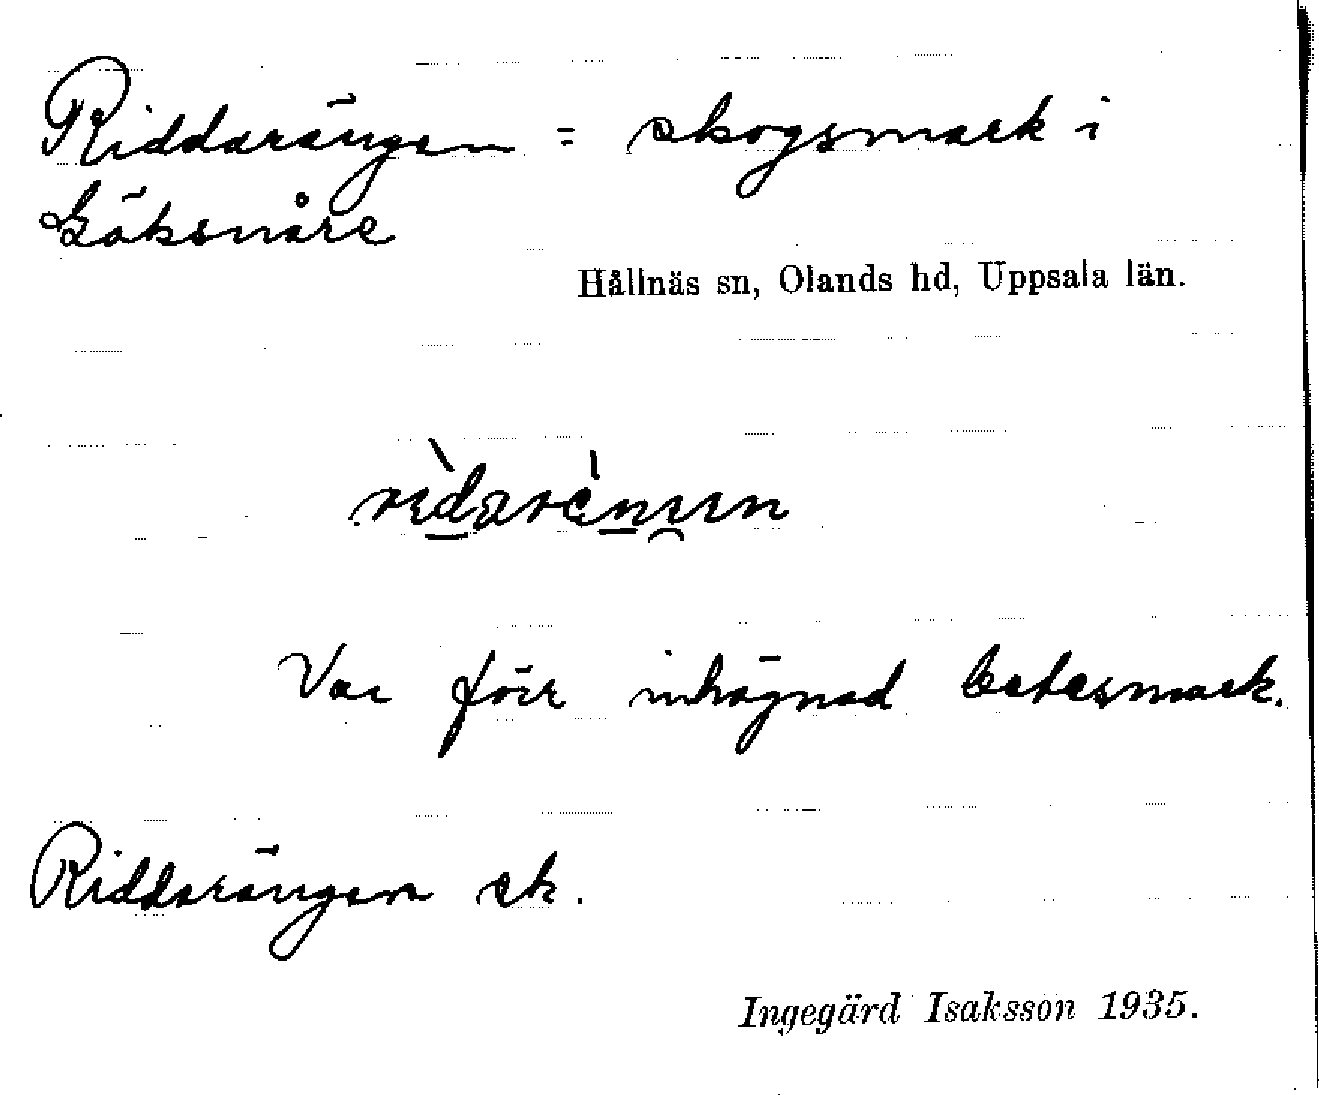 Riddarängen = skogsmark i
Göksnåre
Hållnäs sn, Olands hd, Uppsala län.
Var förr inhägnad betesmark.
Riddarängen sk.
Ingegärd Isaksson 1935.